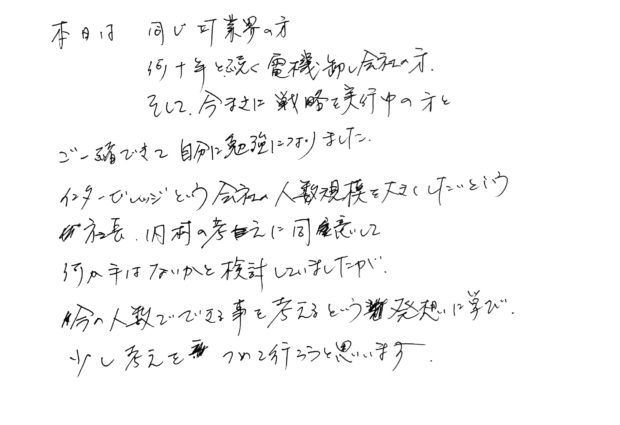 本日は 同じIT業界の方
何十年と続く電機卸し会社の方、
そして、今まさに戦略を実行中の方と
ご一緒できて自分に勉強になりました。
インタービレッジという会社の人数規模を大きくしたいという
社長、内村の考えに同意して
何か手はないかと検討していましたが、
今の人数でできる事を考えるという発想に学び、
少し考えを つめて行こうと思います。